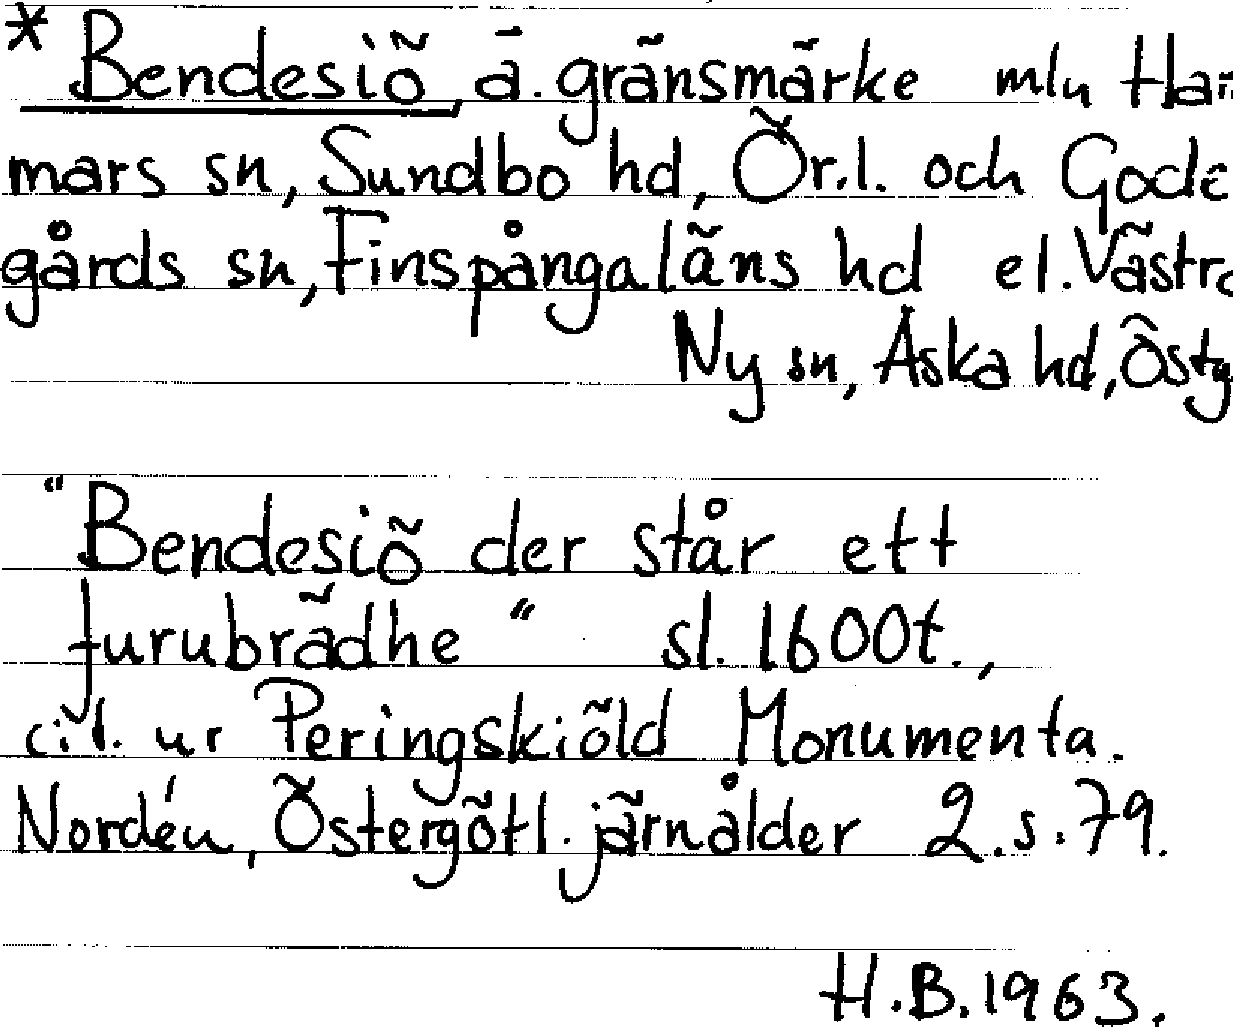 * Bendesiö ä. gränsmärke mlu Ham
mars sn, Sundbo hd, Ör.l. och Gode
gårds sn, Finspånga läns hd el. Västra
Ny sn, Aska hd, Östg
"Bendesiö der står ett
furubrädhe" sl. 1600t.,
cit. ur Peringskiöld Monumenta.
Nordén, Östergötl. järnålder 2. s. 79.
H.B. 1963.